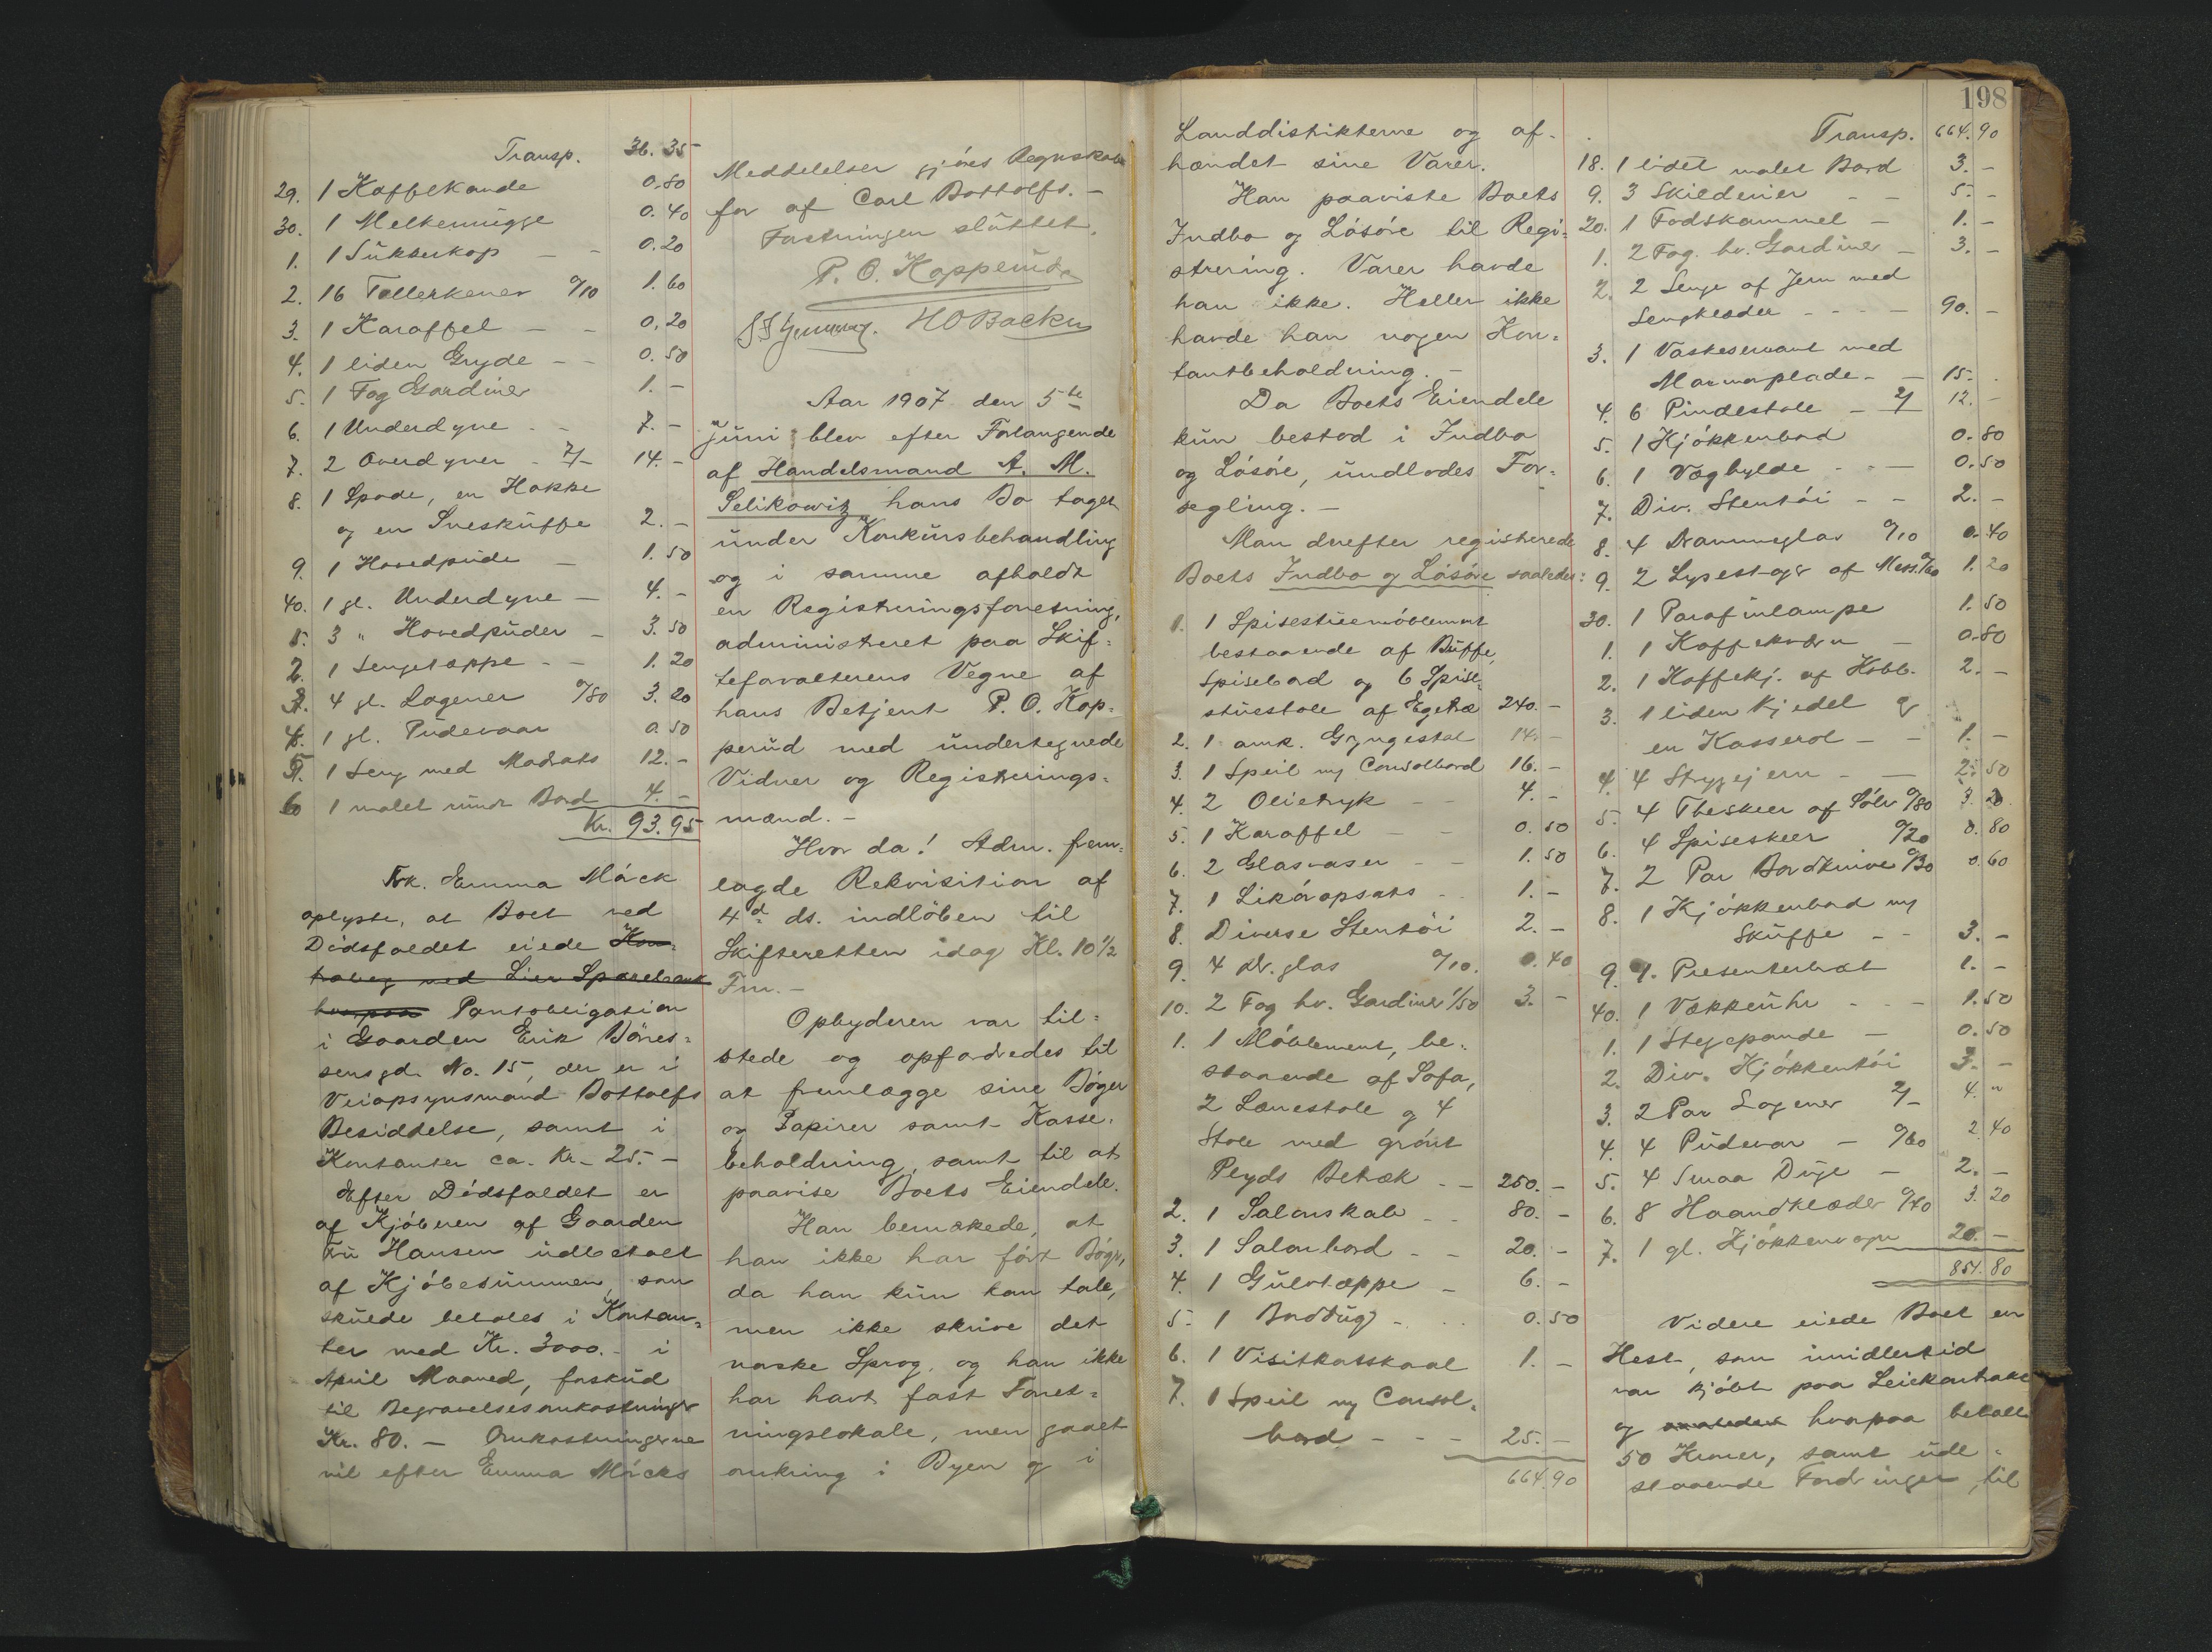 Transp. 36.35
29. 1 Kaffekande 0.80
30. 1 Melkemugge 0.40
1. 1 Sukkerkop - - 0.20
2. 16 Tallerkener 0/10 1.60
3. 1 Karaffel - - 0.20
4. 1 liden Gryde - - 0.50
5. 1 Fag Gardiner 1.-
6. 1 Underdyne - - 7.-
7. 2 Overdyner - 7/- 14.-
8. 1 Spade, en Hakke
og en Sneskuffe 2.-
9. 1 Hovedpude - 1.50
40. 1 gl. Underdyne - 4.-
1. 3 " Hovedpuder - 3.50
2. 1 Sengetæppe - - 1.20
3. 4 gl. Lagener 0/80 3.20
4. 1 gl. Pudevaar 0.50
5. 1 Seng med Madrats 12.-
6 1 malet rundt Bord 4.-
Kr. 93.95
Frk. Emma Möck
oplyste, at Boet ved
Dödsfaldet eiede Kon-
trabog med Lier Sparebank
hvorpaa Pantobligation
i Gaarden Erik Börres-
sensgd. No. 15, der er i
Veiopsynsmand Bottolfs
Besiddelse, samt i
Kontanter ca. Kr. 25.-
Efter Dödsfaldet er
af Kjöberen af Gaarden
Fru Hansen udbetalt
af Kjöbesummen, som
skulde betales i Kontan-
ter med Kr. 3000.- i
April Maaned, forskud
til Begravelsesomkostninger
Kr. 80.- Omkostningerne
vil efter Emma Möcks
Meddelelser gjöres Regnskab
for af Carl Bottolfs.-
Forretningen sluttet.
P. O. Kopperud
HO Backer
Aar 1907 den 5te
Juni blev efter Forlangende
af Handelsmand A. M.
Selikowitz hans Bo taget
under Konkursbehandling
og i samme afholdt
en Registreringsforretning,
administreret paa Skif-
teforvalterens Vegne af
hans Betjent P. O. Kop-
perud med undertegnede
Vidner og Registrerings-
mænd.-
Hvor da! Adm. frem-
lagde Rekvisition af
4d ds. indlöben til
Skifteretten idag Kl. 10 1/2
Fm.-
Opbyderen var til-
stede og opfordredes til
at fremlægge sine Böger
og Papirer samt Kasse-
beholdning, samt til at
paavise Boets Eiendele.
Han bemærkede, at
han ikke har fört Böger,
da han kun kan tale,
men ikke skrive det
norske Sprog, og han ikke
har havt fast Forret-
ningslokale, men gaaet
omkring i Byen og i
198
Landdistrikterne og af-
hændet sine Varer.
Han paaviste Boets
Indbo og Lösöre til Regi-
strering. Varer havde
han ikke. Heller ikke
havde han nogen Kon-
tantbeholdning.-
Da Boets Eiendele
kun bestod i Indbo
og Lösöre, undlodes For-
segling.-
Man derefter registrerede
Boets Indbo og Lösöre saaledes:
1. 1 Spisestuemöblement
bestaaende af Buffe,
Spisebord og 6 Spise-
stuestole af Egetræ 240.-
2. 1 amr. Gyngestol 14.-
3. 1 Speil m/ Consolbord 16.-
4. 2 Olietryk - - 4.-
5. 1 Karaffel - - 0.50
6. 2 Glasvaser - - 1.50
7. 1 Liköropsats - 1.-
8. Diverse Stentöi 2.-
9. 4 dr. glas 0/10. 0.40
10. 2 Fag hv. Gardiner 1/50 3.-
1. 1 Möblement, be-
staaende af Sofa,
2 Lænestole og 4
Stole med grönt
Plyds Betræk - - 250.-
2. 1 Salonskab - - 80.-
3. 1 Salonbord - - 20.-
4. 1 Gulvtæppe - 6.-
5. 1 Borddug - - - 0.50
6. 1 Visitkortskaal 1.-
7. 1 Speil m/ Consol-
bord - - - 25.-
664.90
Transp. 664.90
18. 1 lidet malet Bord 3.-
9. 3 Skilderier - - 5.-
20. 1 Fodskammel - 1.-
1. 2 Fag. hv. Gardiner - 3.-
2. 2 Senge af Jern med
Sengklæder - - - - 90.-
3. 1 Vaskeservant med
Marmorplade - - 15.-
4. 6 Pindestole - 2/ 12.-
5. 1 Kjökkenbord 0.80
6. 1 Væghylde - - - 0.50
7. Div. Stentöi - - 2.-
8. 4 Drammeglas 0/10 0.40
9. 2 Lysestager af Mess. 0/60 1.20
30. 1 Parafinlampe 1.50
1. 1 Kaffekværn - 0.80
2. 1 Kaffekj. af Kobb. 2.-
3. 1 liden Kjedel og
en Kasserol - - 1.-
4. 4 Strygejern - - 2.50
5. 4 Theskeer af Sölv 0/80 3.20
6. 4 Spiseskeer 0/20 0.80
7. 2 Par Bordknive 0/30 0.60
8. 1 Kjökkenbord m/
Skuffe - - 3.-
9. 1. Presenterbræt 1.-
40. 1 Vækkeuhr - - - 1.50
1. 1 Stegepande - 0.50
2. Div. Kjökkentöi 3.-
3. 2 Par Lagener 2/- 4."
4. 4 Pudevar - 0/60 2.40
5. 4 Smaa Duge - 2.-
6. 8 Haandklæder 0/40 3.20
7. 1 gl. Kjökkenvogn 20.-
851.80
Videre eiede Boet en
Hest, som imidlertid
var kjöbt paa Leiekontrakt
og hvorpaa betalt
50 Kroner, samt ude-
staaende Fordringer, til